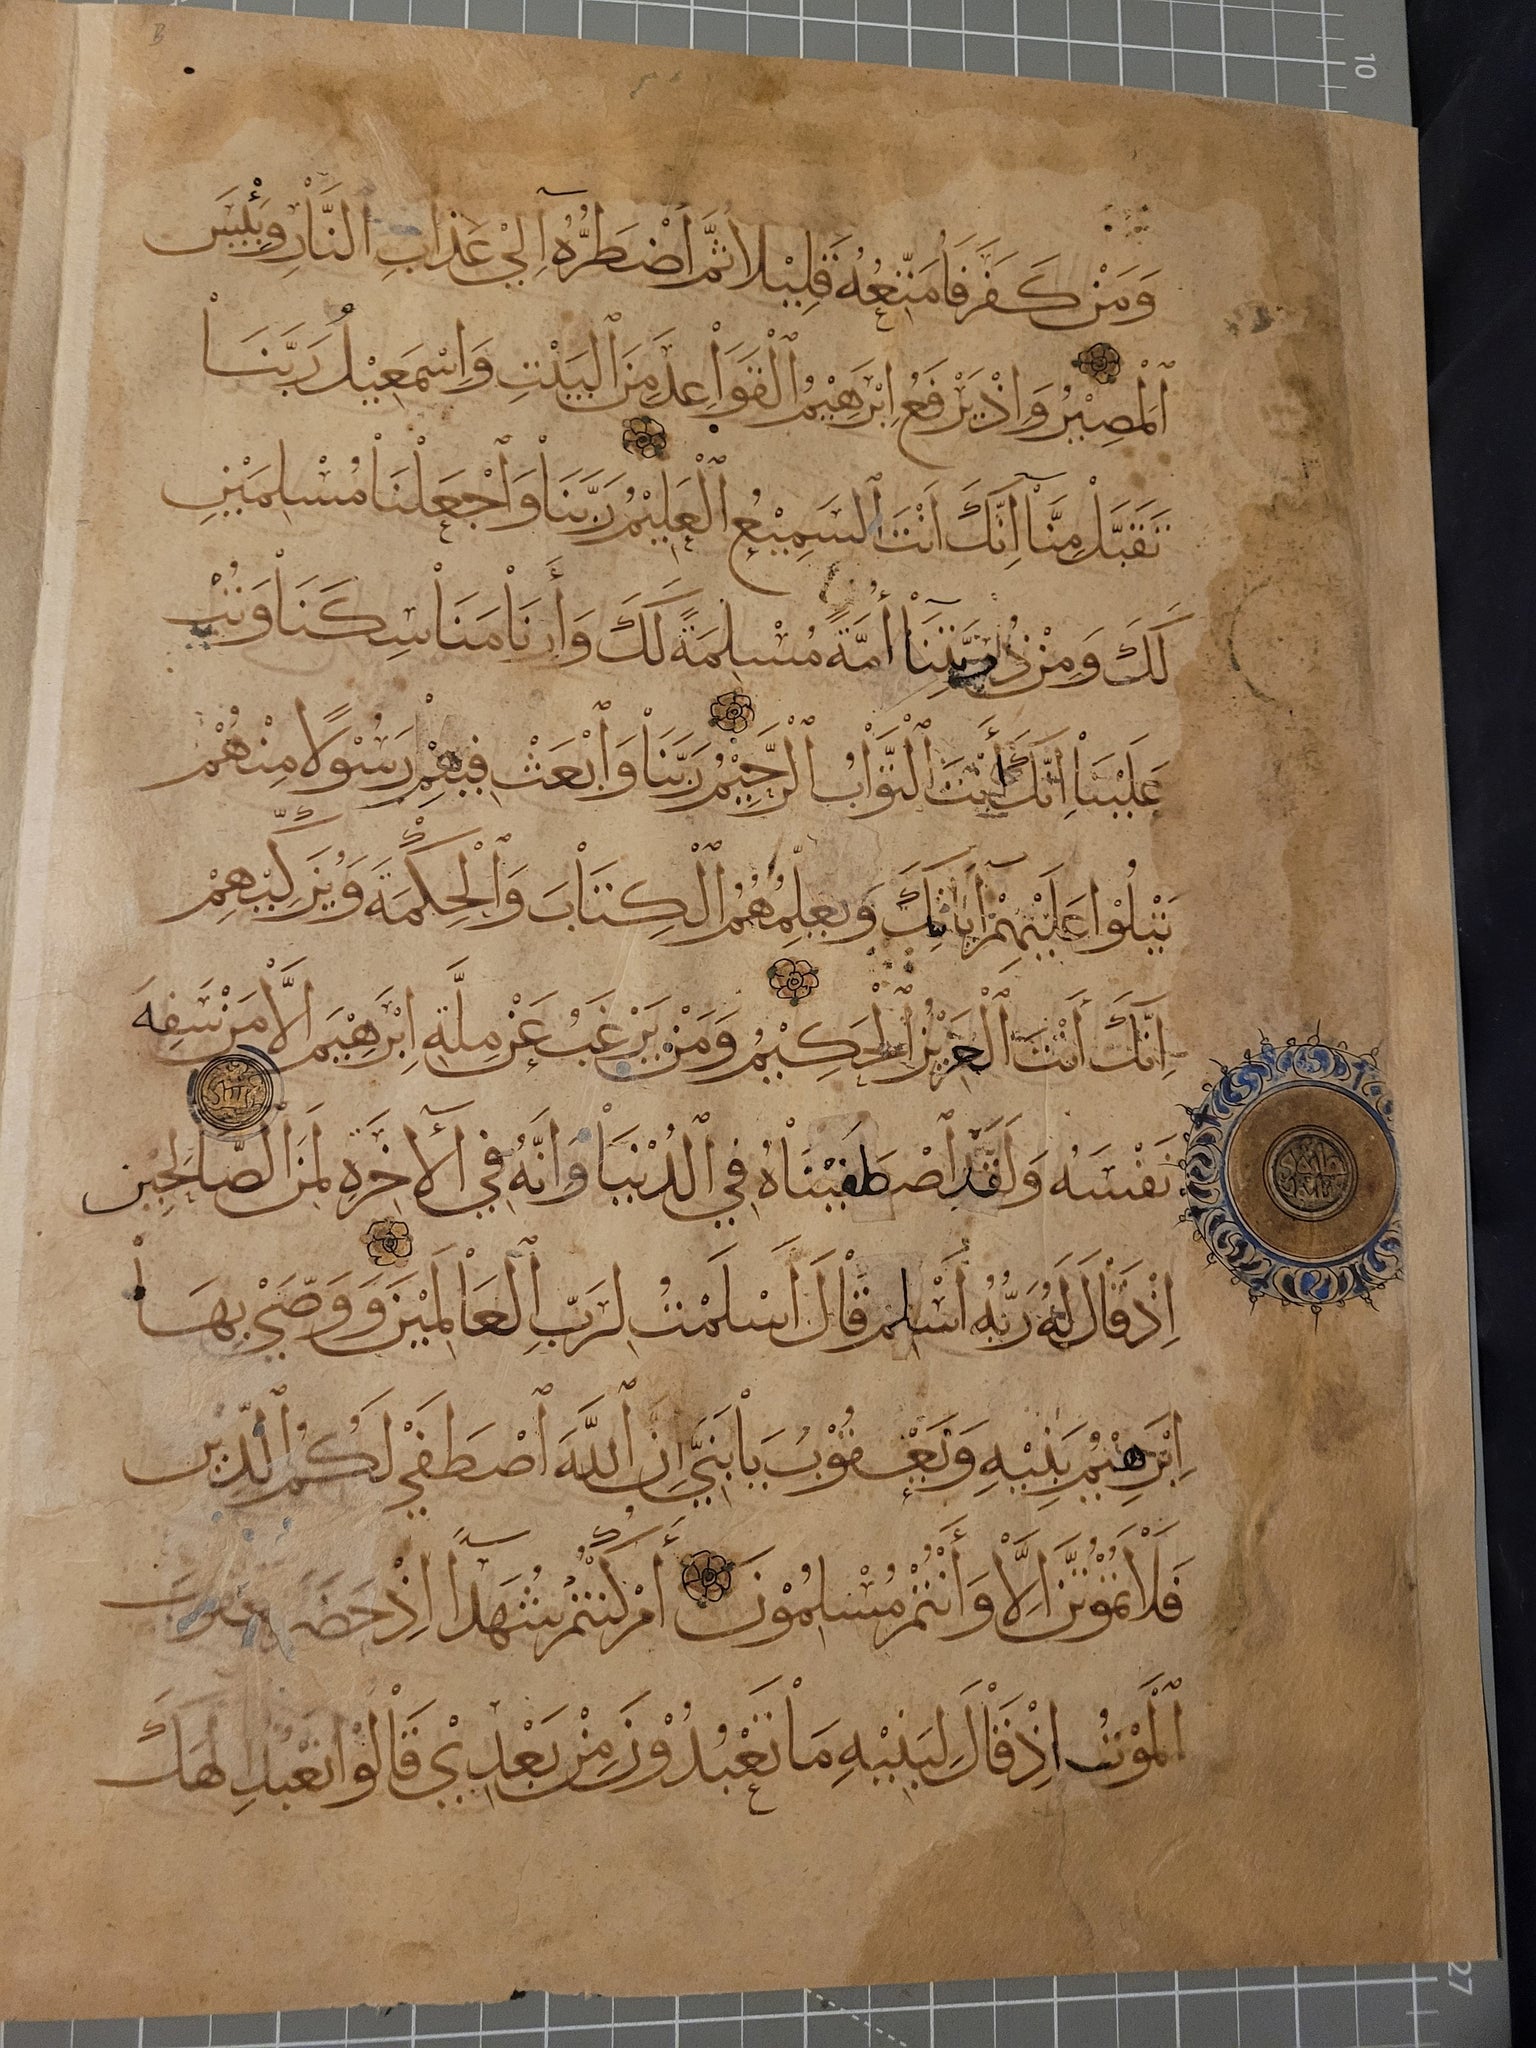 وَمَنْ كَفَرَ فَأُمَتِّعُهُ قَلِيْلًا ثُمَّ أَضْطَرُّهُ اِلٰي عَذَابِ النَّارِ وَبِئْسَ
الْمَصِيْرُ وَاِذْ يَرْفَعُ اِبْرَهِيْمُ الْقَوَاْعِدَ مِنَ الْبَيْتِ وَاِسْمَعِيْلُ رَبَّنَاْ
تَقَبَّلْ مِنَّاْ اِنَّكَ اَنْتَ السَمِيْعُ الْعَلِيْمُ رَبَّنَاْ وَاْجْعَلْنَاْ مُسْلِمَيْنِ
لَكَ وَمِنْ ذُرِّيَّتِنَاْ أُمَّةً مُسْلِمَةً لَكَ وَأَرِنَاْ مَنَاْسِكَنَاْ وَتُبْ
عَلَيْنَاْ اِنَّكَ أَنْتَ الْتَّوَّاْبُ الْرَّحِيْمُ رَبَّنَاْ وَاْبْعَثْ فِيْهِمْ رَسُوْلًا مِنْهُمْ
يَتْلُوْا عَلَيْهِمْ آيَاتِكَ وَيُعَلِّمُهُمُ الْكِتَاْبَ وَالْحِكْمَةَ وَيُزَكِّيْهِمْ
اِنَّكَ أَنْتَ الْعَزِيْزُ الْحَكِيْمُ وَمَنْ يَرْغَبُ عَنْ مِلَّةِ اِبْرَهِيْمَ اِلَّا مَنْ سَفِهَ
نَفْسَهُ وَلَقَدِ اصْطَفَيْنَاْهُ فِي الدُنْيَاْ وَاِنَّهُ فِي الْآخِرَةِ لَمِنَ الصَّاْلِحِيْنَ
اِذْ قَاْلَ لَهُ رَبُّهُ أَسْلِمْ قَاْلَ أَسْلَمْتُ لِرَبِّ الْعَاْلَمِيْنَ وَوَصَّيْ بِهَاْ
اِبْرَهِيْمُ بَنِيْهِ وَيَعْقُوْبُ يَاْبَنِيَّ اِنَّ اللَّهَ اصْطَفَيْ لَكُمُ الْدِّيْنَ
فَلَاْ تَمُوْتُنَّ اِلَّاْ وَأَنْتُمْ مُسْلِمُوْنَ أَمْ كُنْتُمْ شُهَدَآءَ اِذْ حَضَرَ يَعْقُوبَ
الْمَوْتُ اِذْ قَاْلَ لِبَنِيْهِ مَاْ تَعْبُدُوْنَ مِنْ بَعْدِيْ قَاْلُوْا نَعْبُدُ اِلٰهَكَ